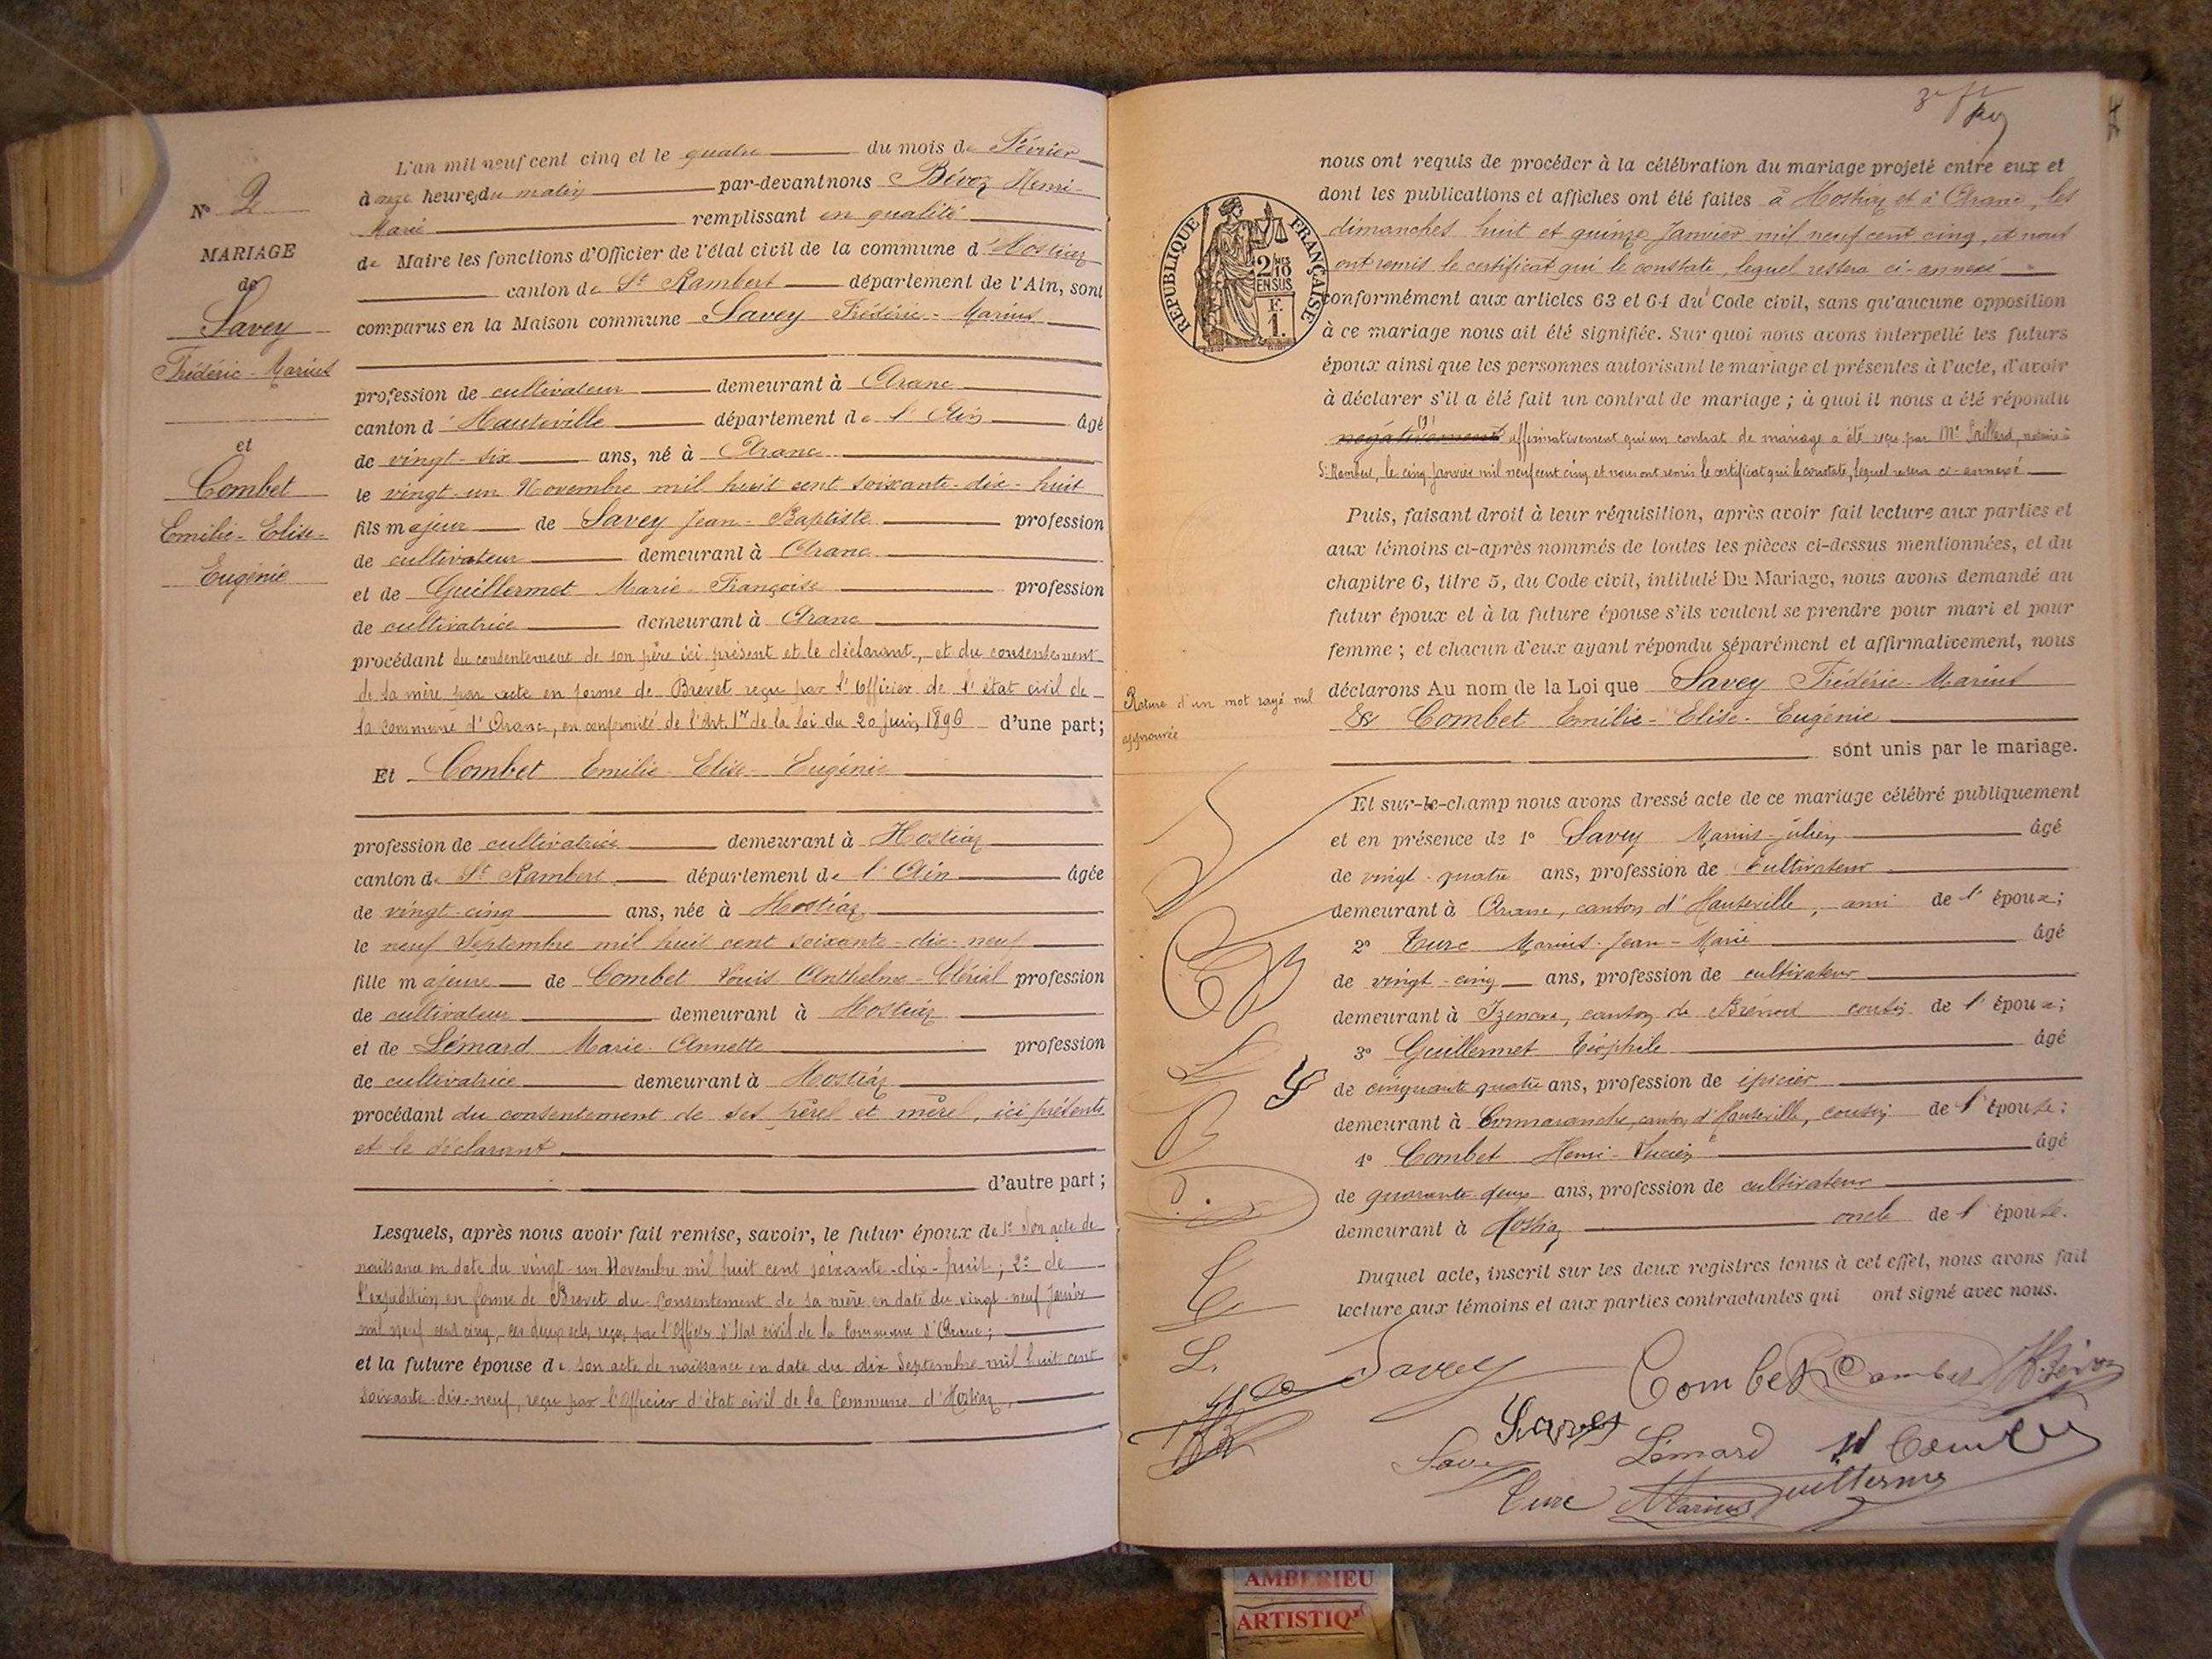 L'an mil neuf cent cinq et le quatre du mois de Février
à onze heures du matin par-devant nous Bévoz Henri-
Marie remplissant en qualité
de Maire les fonctions d'Officier de l'état civil de la commune d'Hostiaz
canton de St Rambert département de l'Ain, sont
comparus en la Maison commune Savey Frédéric-Marius
profession de cultivateur demeurant à Aranc
canton d'Hauteville département de l'Ain âgé
de vingt-six ans, né à Aranc
le vingt-un Novembre mil huit cent soixante-dix-huit
fils majeur de Savey Jean-Baptiste profession
de cultivateur demeurant à Aranc
et de Guillermet Marie-Françoise profession
de cultivatrice demeurant à Aranc
procédant du consentement de son père ici présent et le déclarant, et du consentement
de sa mère par acte en forme de Brevet reçu par l'Officier de l'état civil de
la commune d'Aranc, en conformité de l'Art. 1er de la loi du 20 Juin 1896 d'une part;
Et Combet Emilie-Elise-Eugénie
profession de cultivatrice demeurant à Hostiaz
canton de St Rambert département de l'Ain âgée
de vingt-cinq ans, née à Hostiaz
le neuf Septembre mil huit cent soixante-dix-neuf
fille majeure de Combet Louis Anthelme-Clérial profession
de cultivateur demeurant à Hostiaz
et de Lémard Marie-Annette profession
de cultivatrice demeurant à Hostiaz
procédant du consentement de ses père et mère, ici présents
et le déclarant
d'autre part;
Lesquels, après nous avoir fait remise, savoir, le futur époux de 1° Son acte de
naissance en date du vingt-un Novembre mil huit cent soixante-dix-huit; 2° de
l'expédition en forme de Brevet du Consentement de sa mère en date du vingt-neuf Janvier
mil neuf cent cinq, ces deux actes reçus par l'Officier d'Etat civil de la Commune d'Aranc;
et la future épouse de son acte de naissance en date du dix Septembre mil huit cent
soixante-dix-neuf, reçu par l'Officier d'état civil de la Commune d'Hostiaz,
N° 2
MARIAGE
de
Savey
Frédéric-Marius
et
Combet
Emilie-Elise-
Eugénie
nous ont requis de procéder à la célébration du mariage projeté entre eux et
dont les publications et affiches ont été faites à Hostiaz et à Aranc, les
dimanches huit et quinze Janvier mil neuf cent cinq, et nous
ont remis le certificat qui le constate, lequel restera ci-annexé
conformément aux articles 63 et 64 du Code civil, sans qu'aucune opposition
à ce mariage nous ait été signifiée. Sur quoi nous avons interpellé les futurs
époux ainsi que les personnes autorisant le mariage et présentes à l'acte, d'avoir
à déclarer s'il a été fait un contrat de mariage; à quoi il nous a été répondu
négativement affirmativement qu'un contrat de mariage a été reçu par Me notaire à
St Rambert, le cinq Janvier mil neuf cent cinq et nous ont remis le certificat qui le constate, lequel restera ci-annexé
Puis, faisant droit à leur réquisition, après avoir fait lecture aux parties et
aux témoins ci-après nommés de toutes les pièces ci-dessus mentionnées, et du
chapitre 6, titre 5, du Code civil, intitulé Du Mariage, nous avons demandé au
futur époux et à la future épouse s'ils veulent se prendre pour mari et pour
femme; et chacun d'eux ayant répondu séparément et affirmativement, nous
déclarons Au nom de la Loi que Savey Frédéric-Marius
Et Combet Emilie-Elise-Eugénie
sont unis par le mariage.
Et sur-le-champ nous avons dressé acte de ce mariage célébré publiquement
et en présence de 1° Savey Marius-Julien âgé
de vingt-quatre ans, profession de cultivateur
demeurant à Aranc, canton d'Hauteville, ami de l'époux;
2° Turc Marius-Jean-Marie âgé
de vingt-cinq ans, profession de cultivateur
demeurant à Izenave, canton de Brénod cousin de l'époux;
3° Guillermet Théophile âgé
de cinquante quatre ans, profession de épicier
demeurant à Cormaranche, canton d'Hauteville, cousin de l'épouse;
4° Combet Henri-Lucien âgé
de quarante-deux ans, profession de cultivateur
demeurant à Hostiaz oncle de l'épouse.
Duquel acte, inscrit sur les deux registres tenus à cet effet, nous avons fait
lecture aux témoins et aux parties contractantes qui ont signé avec nous.
Rature d'un mot rayé nul
approuvée
REPUBLIQUE FRANÇAISE
2/10 EN SUS
F.
1.
Savey Combet Combet HBévoz
Savey Lémard Combet
Savey
Turc Marius Guillermet
AMBERIEU
ARTISTIQ